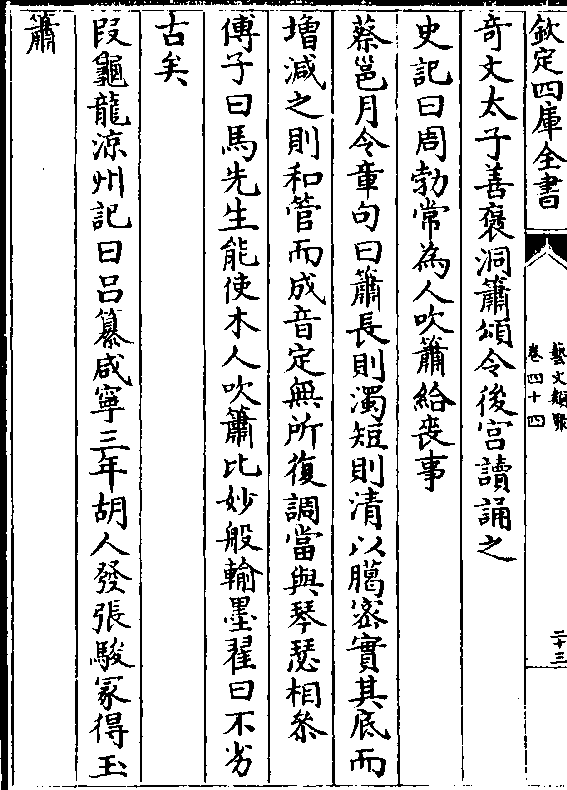 欽定四庫全書
藝文類聚
卷四十四
二十三
奇文太子善褒洞簫頌令後宮讀誦之
史記曰周勃常為人吹簫給喪事
蔡邕月令章句曰簫長則濁短則清以臈宻實其底而
増減之則和管而成音定無所復調當與琴瑟相叅
傅子曰馬先生能使木人吹簫比妙般輸墨翟曰不劣
古矣
段龜龍涼州記曰吕纂咸寧三年胡人發張駿冢得玉
簫